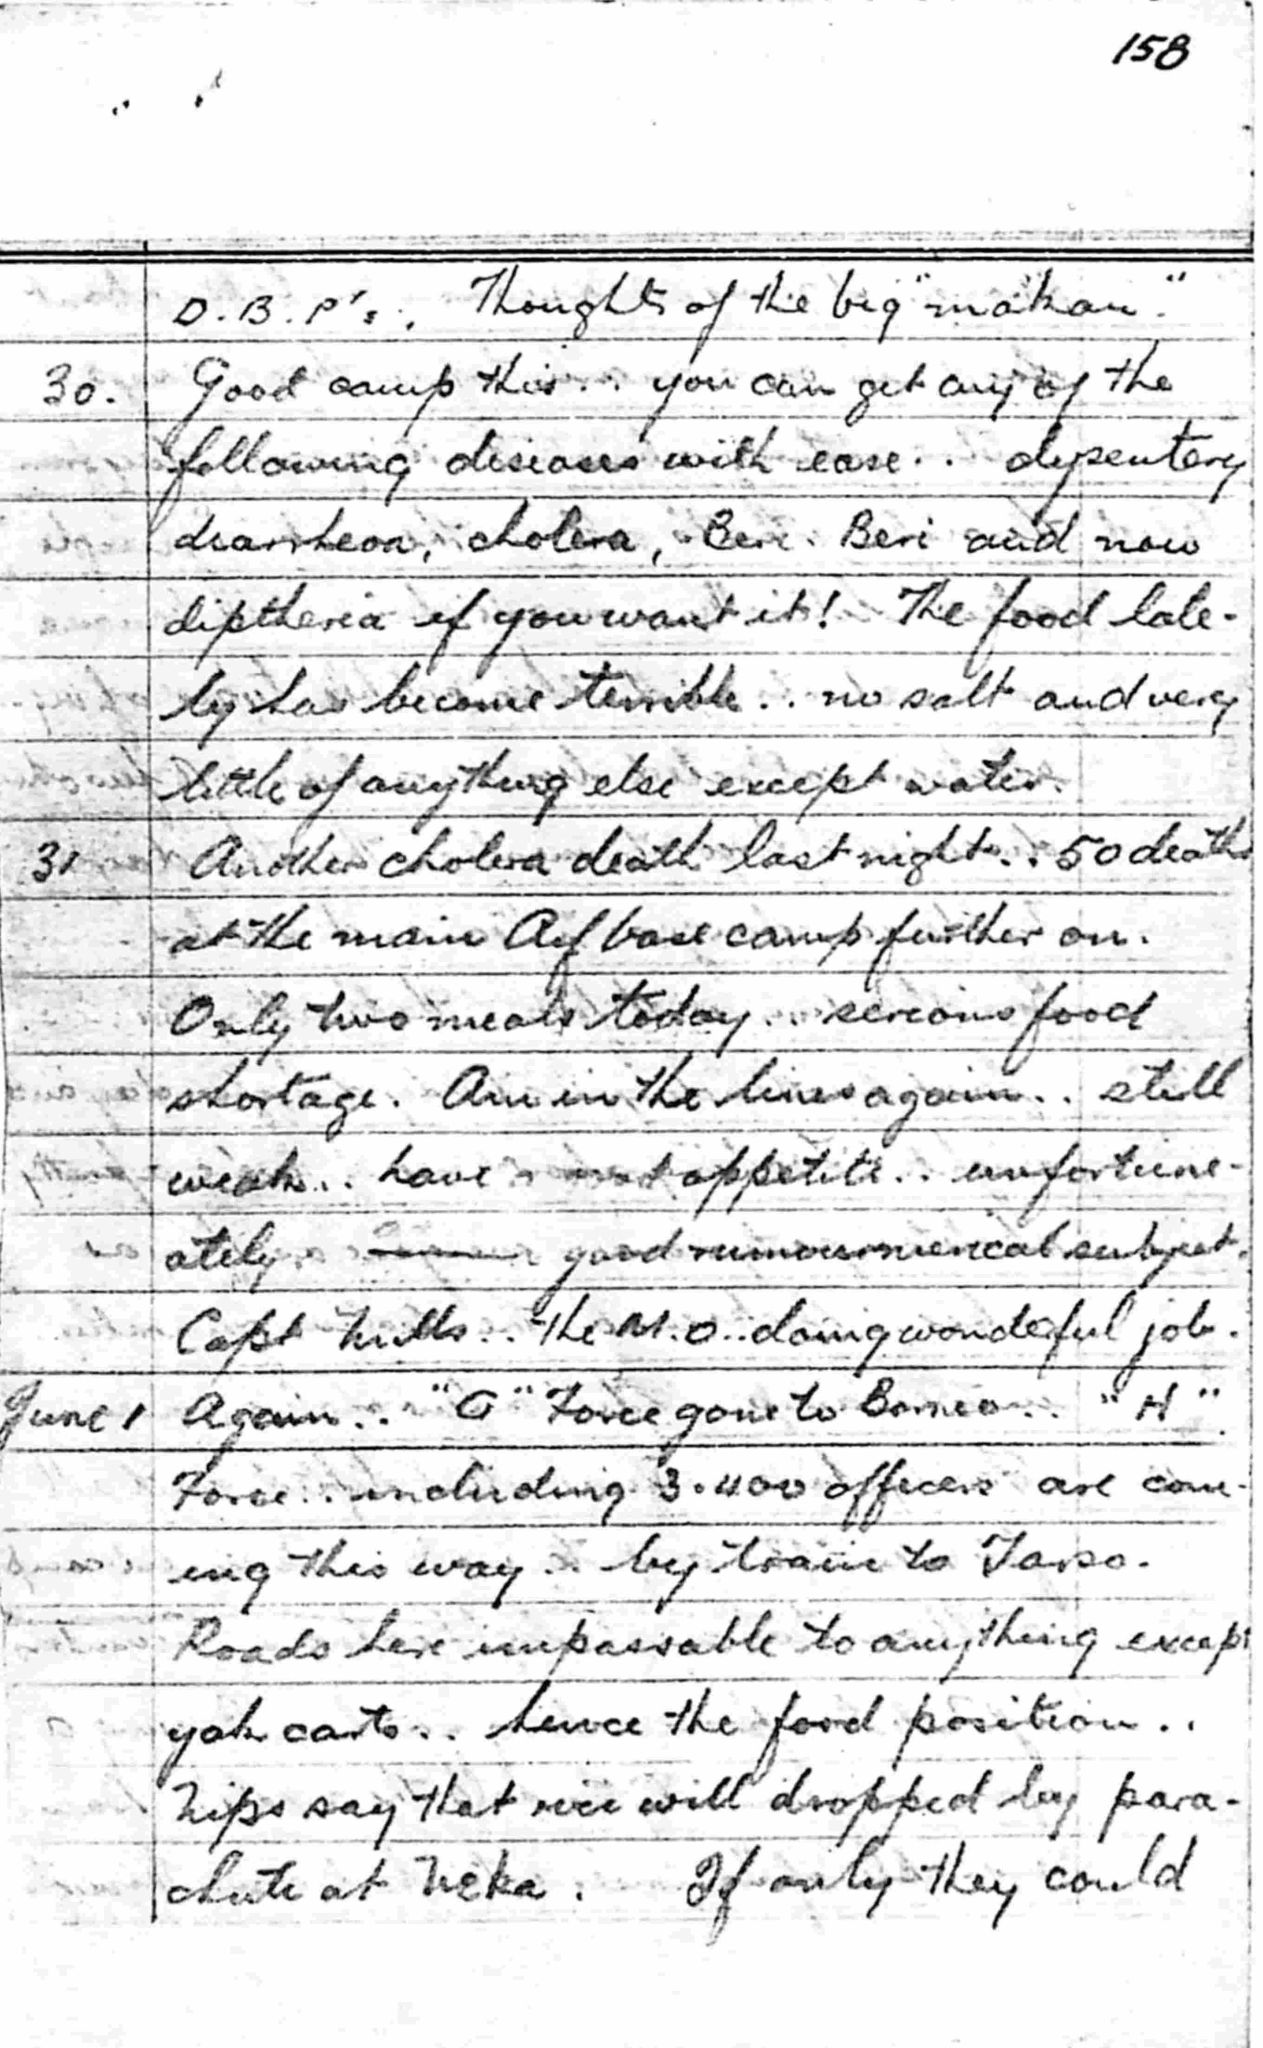 158
D.B.P's.. Thoughts of the big "makan."
30. Good camp this... you can get any of the
following diseases with ease.. dysentery
diarrheoa, cholera, Beri Beri and now
diptheria if you want it! The food late-
ly has become terrible... no salt and very
little of anything else except water.
31 Another cholera death last night... 50 deaths
at the main base camp further on.
Only two meals today... serious food
shortage. Am in the lines again.. still
weak... have appetite.. unfortune-
ately. good subject.
Capt Mills.. the M.O.. doing wonderful job.
June 1 Again.. "G" Force gone to Borneo.. "H"
Force.. including 3.400 officers are com-
ing this way... by train to Tarso.
Roads here impassable to anything except
yak carts.. hence the food position..
Nips say that rice will dropped by para-
chute at Neka. If only they could